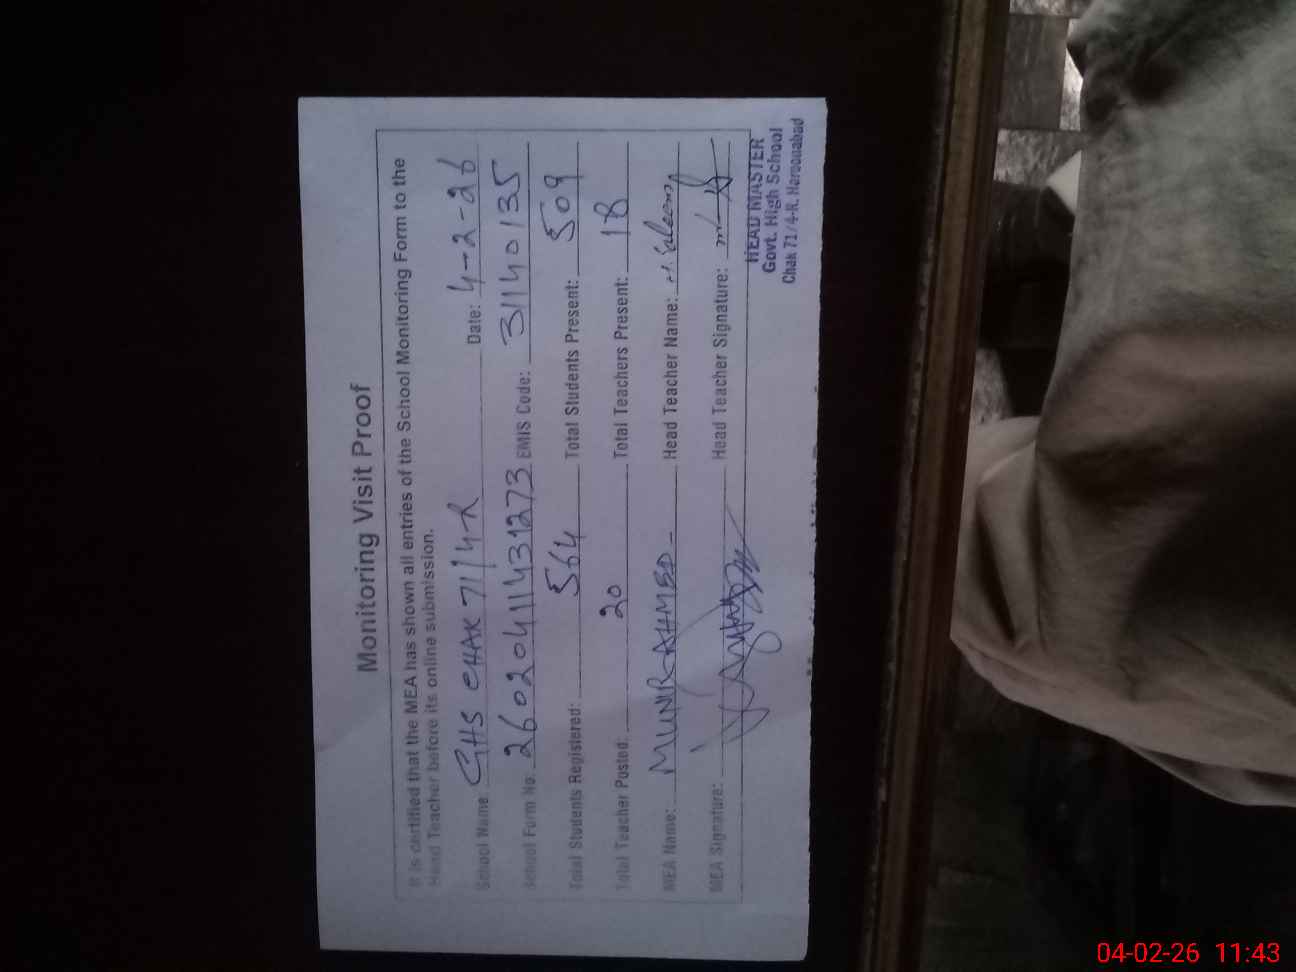 Monitoring Visit Proof
It is certified that the MEA has shown all entries of the School Monitoring Form to the
Head Teacher before its online submission.
School Name: GHS CHAK 71/4-R Date: 4-2-26
School Form No: 26020411431273 EMIS Code: 31140135
Total Students Registered: 564 Total Students Present: 509
Total Teacher Posted: 20 Total Teachers Present: 18
MEA Name: MUNIR AHMED Head Teacher Name: M. Saleem
MEA Signature: Head Teacher Signature:
HEAD MASTER
Govt. High School
Chak 71/4-R. Haroonabad
04-02-26 11:43